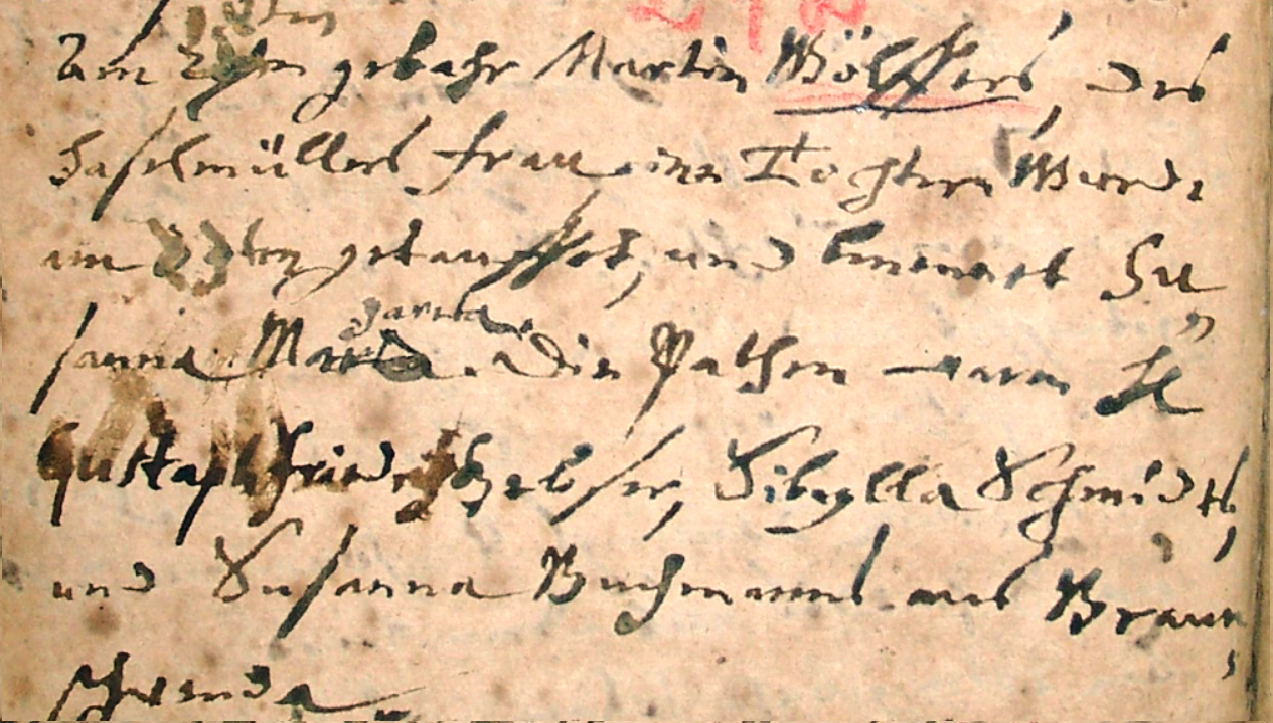 gebahr Martin Wölffers, des
Haselmüllers Frau eine Tochter. Wurde
am getauffet, und benennet Su
sanna Maria. Die Pathen waren H
Gustaph Friedrich, Sibylla Schmidts,
und Susanna Buchmanns aus Braun
schwenda